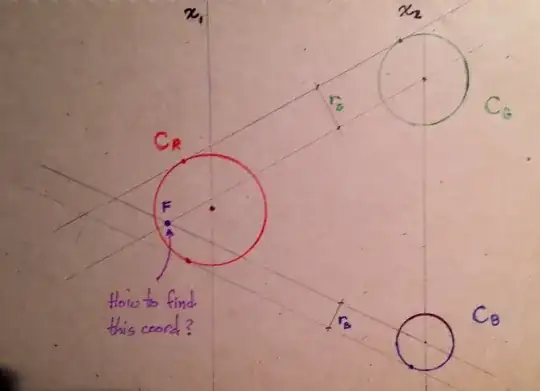 x₁
x₂
r_G
C_G
C_R
F
How to find
this coord?
r_B
C_B